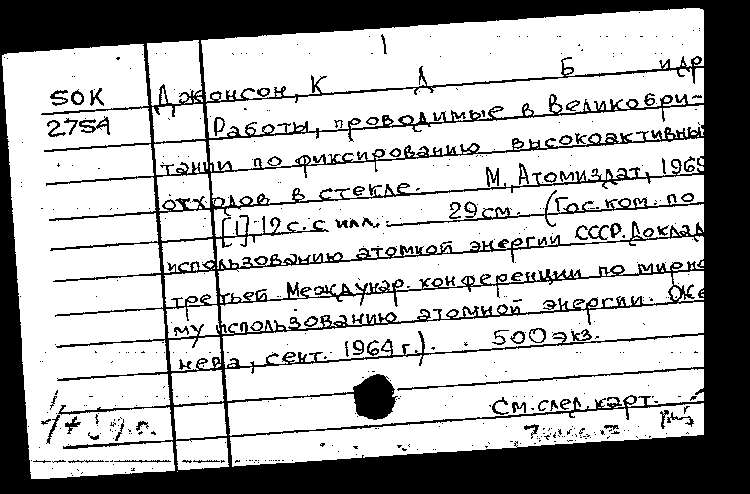 1
50К Джонсон, К Д Б и др
2754 Работы, проводимые в Великобри-
тании по фиксированию высокоактивны
отходов в стекле. М., Атомиздат, 1965
[1], 12 с. с илл. 29 см. (Гос. ком. по
использованию атомной энергии СССР. Доклад
третьей Междунар. конференции по мирно
му использованию атомной энергии. Же
нева, сент. 1964 г.). 500 экз.
См. след. карт.